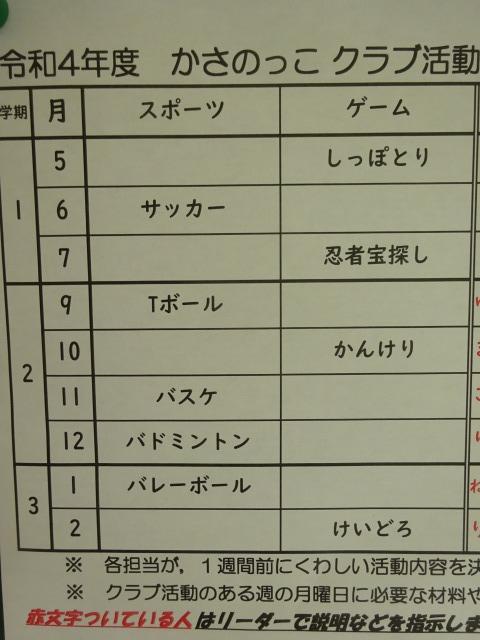 令和4年度 かさのっこ クラブ活動
学期 月 スポーツ ゲーム
1
5 しっぽとり
6 サッカー
7 忍者宝探し
2
9 Tボール
10 かんけり
11 バスケ
12 バドミントン
3
1 バレーボール
2 けいどろ
※ 各担当が，1週間前にくわしい活動内容を決
※ クラブ活動のある週の月曜日に必要な材料や
赤文字ついている人はリーダーで説明などを指示しま